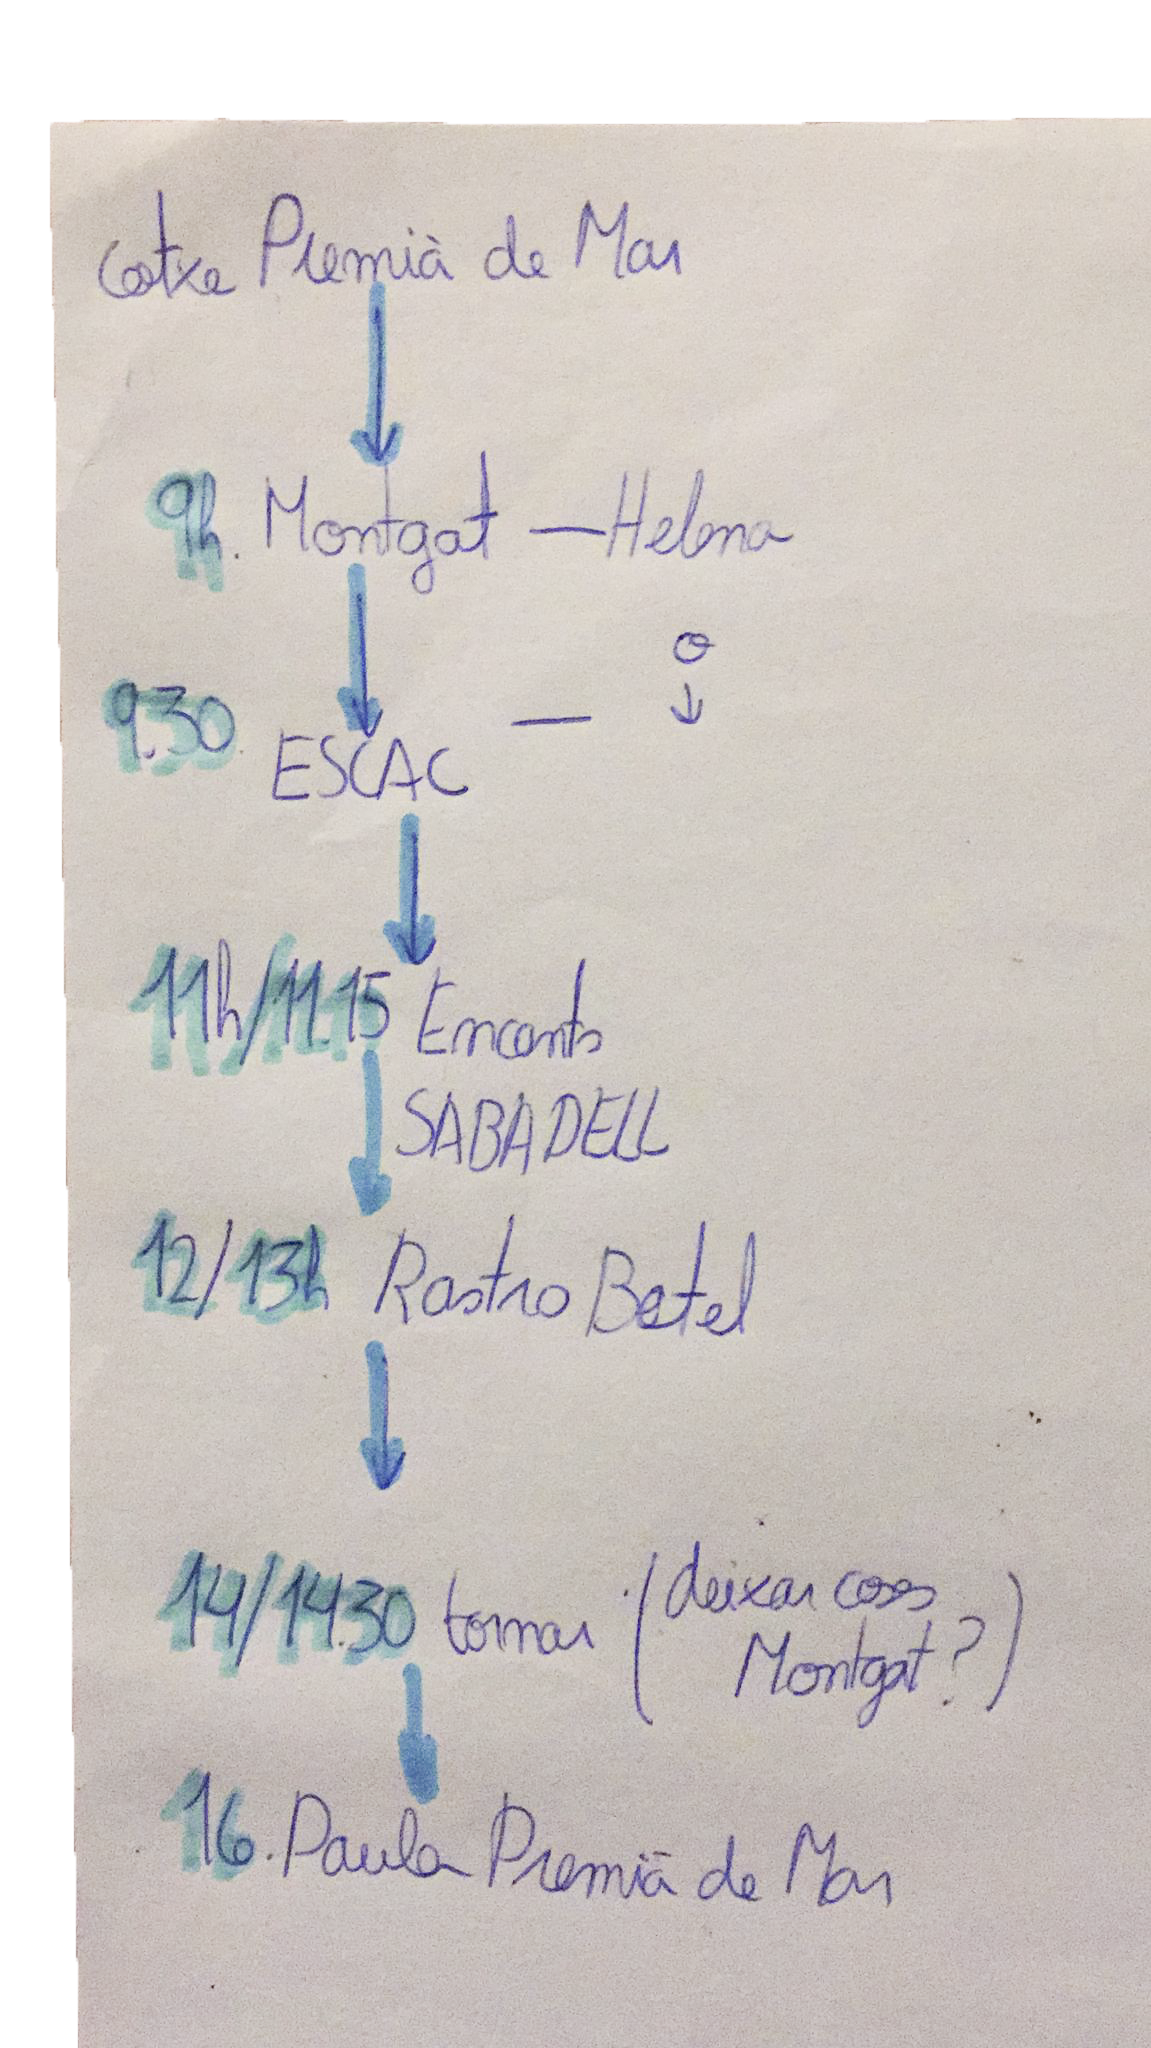 cotxe Premià de Mar
9h. Montgat — Helena
o
9.30. ESCAC —
11h/11.15 Encants
SABADELL
12/13h Rastro Betel
14/14.30 tornar (deixar coses
Montgat?)
16. Paula Premià de Mar